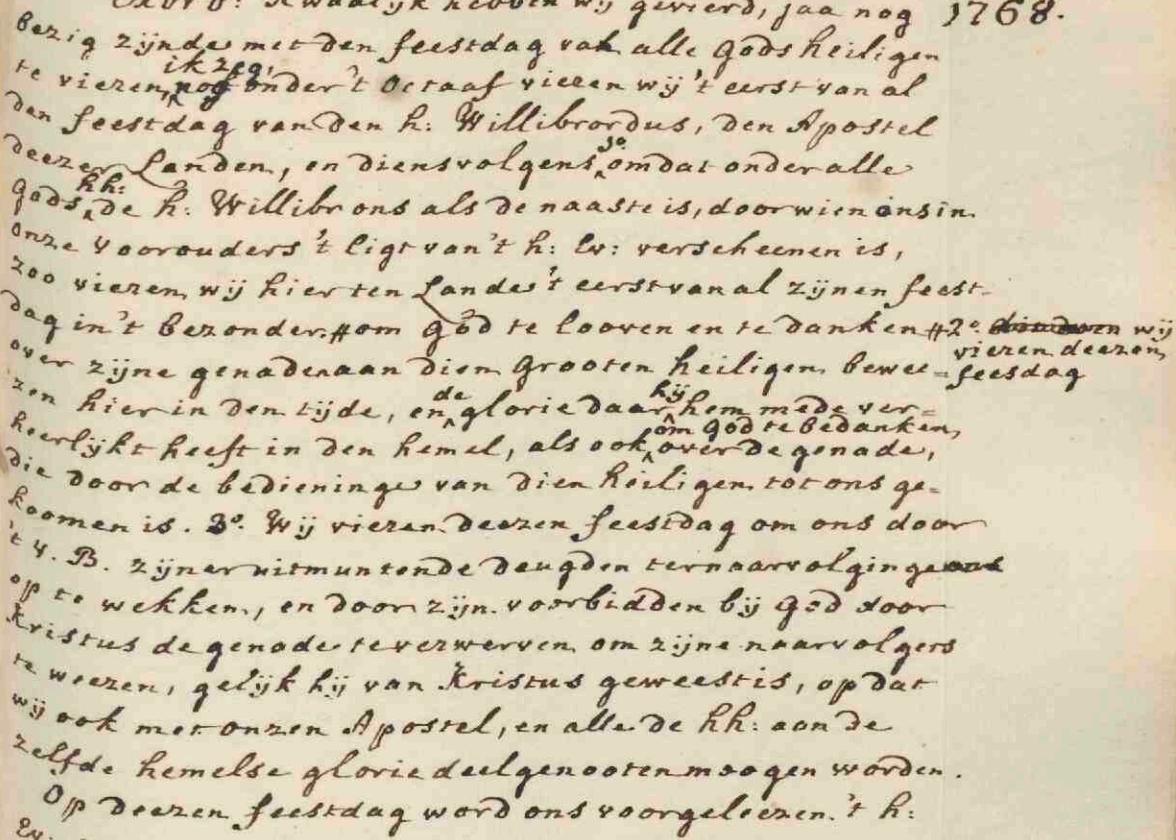 Exord: Kwaalijk hebben wij gevierd, jaa nog 1768.
bezig zijnde met den feestdag van alle gods heiligen
te vieren, ik zeg, nog onder 't Octaaf vieren wij 't eerst van al
den feestdag van den h: Willibrordus, den Apostel
deezer Landen, en diensvolgens, 1o. omdat onder alle
gods hh: de h: Willibrons als de naaste is, door wien ons in
onze voorouders 't ligt van 't h: Ev: verscheenen is,
zoo vieren wij hier ten Lande 't eerst van al zijnen feest-
dag in 't bezonder. # om god te looven en te danken # 2o. wij
vieren deezen
feesdag
over zijne genaden aan dien grooten heiligen bewee=
zen hier in den tijde, en de glorie daar hij hem mede ver=
heerlijkt heeft in den hemel, als ook om god te bedanken, over de genade,
die door de bedieninge van dien heiligen tot ons ge=
koomen is. 3o. Wij vieren deezen feestdag om ons door
't v. B. zijner uitmuntende deugden ter naarvolginge
op te wekken, en door zijn voorbidden bij god door
Kristus de genade te verwerven om zijne naarvolgers
te weezen, gelijk hij van Kristus geweest is, op dat
wij ook met onzen Apostel, en alle de hh: aan de
zelfde hemelse glorie deelgenooten moogen worden.
Op deezen feestdag word ons voorgeleezen 't h:
Ev: